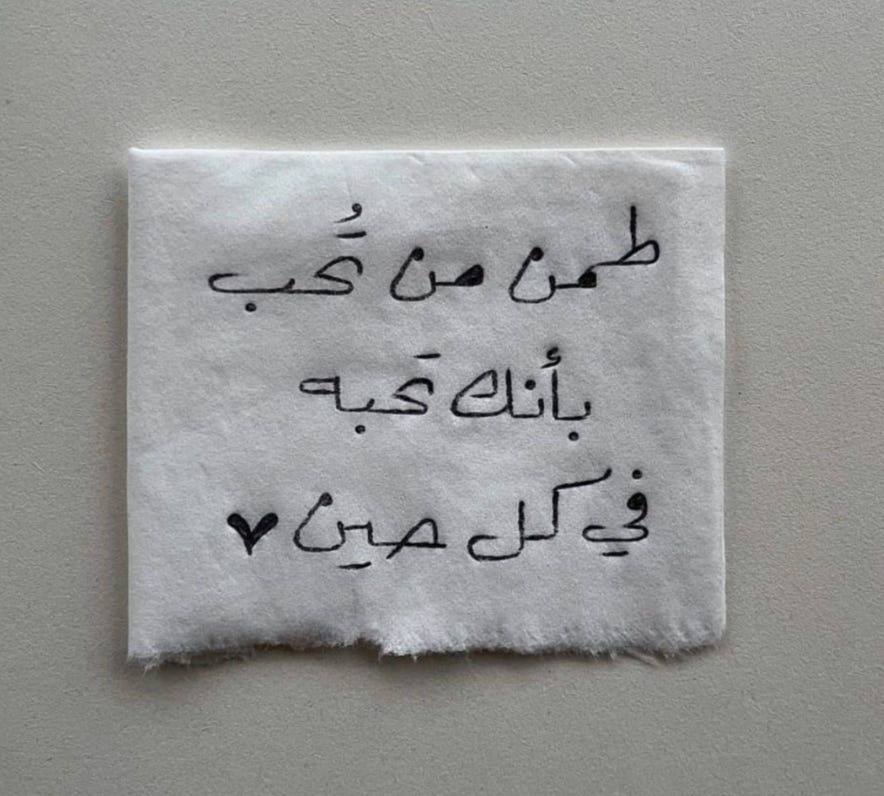 طمن من تُحب
بأنك تحبه
في كل حين ♥